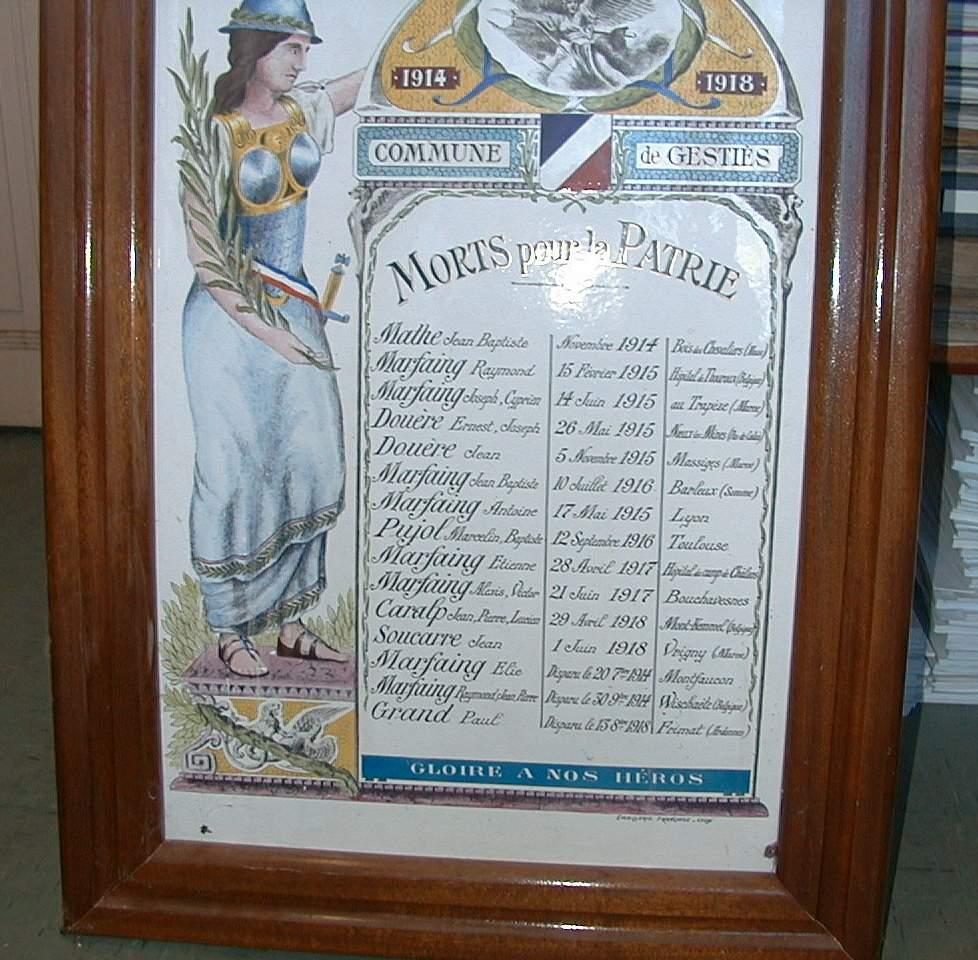 1914 1918
COMMUNE de GESTIÈS
MORTS pour la PATRIE
Mathe Jean Baptiste Novembre 1914 Bois des Chevaliers (Meuse)
Marfaing Raymond 15 Février 1915 Hôpital de (Belgique)
Marfaing Joseph, Cyprien 14 Juin 1915 au Trapèze (Marne)
Douère Ernest, Joseph 26 Mai 1915 Nœux les Mines (Pas-de-Calais)
Douère Jean 5 Novembre 1915 Massiges (Marne)
Marfaing Jean Baptiste 10 Juillet 1916 Barleux (Somme)
Marfaing Antoine 17 Mai 1915 Lyon
Pujol Marcelin, Baptiste 12 Septembre 1916 Toulouse
Marfaing Etienne 28 Avril 1917 Hôpital du camp de Châlons
Marfaing Alexis, Victor 21 Juin 1917 Bouchavesnes
Caralp Jean, Pierre, Lucien 29 Avril 1918 Mont-Kemmel (Belgique)
Soucarre Jean 1 Juin 1918 Vrigny (Marne)
Marfaing Elie Disparu le 20 7bre 1914 Montfaucon
Marfaing Raymond, Jean, Pierre Disparu le 30 9bre 1914 Wischaële (Belgique)
Grand Paul Disparu le 15 8bre 1918 Primat (Ardennes)
GLOIRE A NOS HÉROS